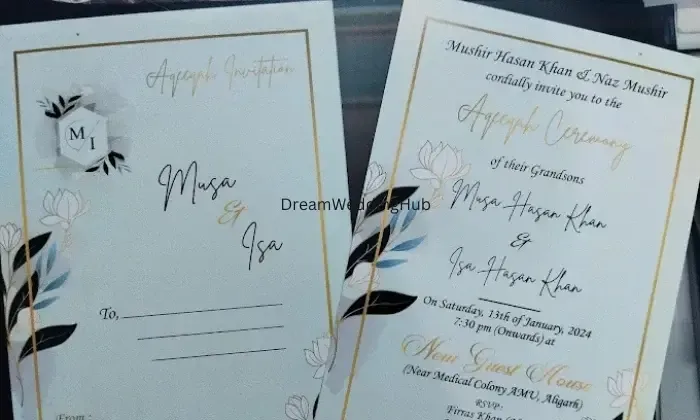 Aqeeqah Invitation
M
I
Musa
&
Isa
To,
From :
Mushir Hasan Khan & Naz Mushir
cordially invite you to the
Aqeeqah Ceremony
of their Grandsons
Musa Hasan Khan
&
Isa Hasan Khan
On Saturday, 13th of January, 2024
7:30 pm (Onwards) at
New Guest House
(Near Medical Colony AMU, Aligarh)
RSVP:
Firras Khan
DreamWeddingHub